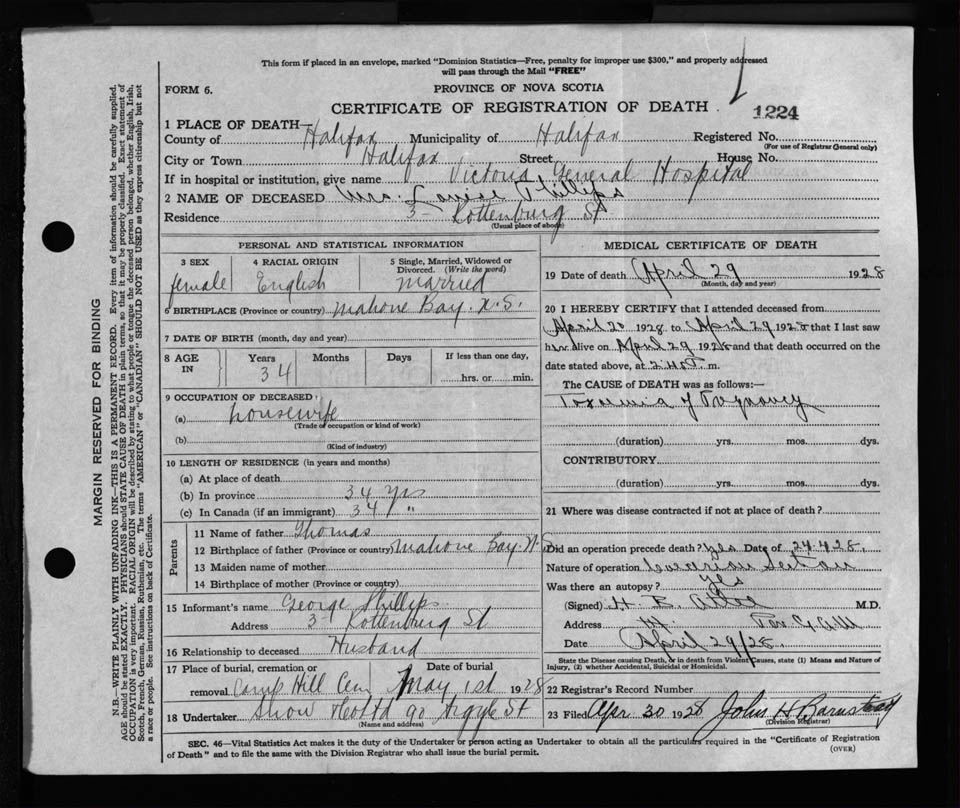 This form if placed in an envelope, marked "Dominion Statistics—Free, penalty for improper use $300," and properly addressed
will pass through the Mail "FREE"
FORM 6.
PROVINCE OF NOVA SCOTIA
CERTIFICATE OF REGISTRATION OF DEATH.
1224
1 PLACE OF DEATH—
County of Halifax Municipality of Halifax Registered No.
(For use of Registrar General only)
City or Town Halifax Street House No.
If in hospital or institution, give name Victoria General Hospital
2 NAME OF DECEASED Mrs. Louise Phillips
Residence 3 Kottenburg St
(Usual place of abode)
PERSONAL AND STATISTICAL INFORMATION
3 SEX 4 RACIAL ORIGIN 5 Single, Married, Widowed or
Divorced. (Write the word)
female English Married
6 BIRTHPLACE (Province or country) Mahone Bay. N.S.
7 DATE OF BIRTH (month, day and year)
8 AGE IN Years Months Days If less than one day,
34 hrs. or min.
9 OCCUPATION OF DECEASED
(a) housewife
(Trade or occupation or kind of work)
(b)
(Kind of industry)
10 LENGTH OF RESIDENCE (in years and months)
(a) At place of death
(b) In province 34 yrs
(c) In Canada (if an immigrant) 34 "
Parents
11 Name of father Thomas
12 Birthplace of father (Province or country) Mahone Bay. N.S.
13 Maiden name of mother
14 Birthplace of mother (Province or country)
15 Informant's name George Phillips
Address 3 Kottenburg St
16 Relationship to deceased Husband
17 Place of burial, cremation or Date of burial
removal Camp Hill Cem May 1st 1928
18 Undertaker Snow & Co Ltd 90 Argyle St
(Name and address)
MEDICAL CERTIFICATE OF DEATH
19 Date of death April 29 1928
(Month, day and year)
20 I HEREBY CERTIFY that I attended deceased from
April 20 1928 to April 29 1928 that I last saw
her alive on April 29 1928 and that death occurred on the
date stated above, at m.
The CAUSE of DEATH was as follows:—
Toxemia of Pregnancy
(duration) yrs. mos. dys.
CONTRIBUTORY
(duration) yrs. mos. dys.
21 Where was disease contracted if not at place of death?
Did an operation precede death? Yes Date of 24.4.28.
Nature of operation Caesarian Section
Was there an autopsy? yes
(Signed) H. B. M.D.
Address
Date April 29/28
State the Disease causing Death, or in death from Violent Causes, state (1) Means and Nature of
Injury, (2) whether Accidental, Suicidal or Homicidal.
22 Registrar's Record Number
23 Filed Apr 30 1928 John H Barnstead
(Division Registrar)
SEC. 46—Vital Statistics Act makes it the duty of the Undertaker or person acting as Undertaker to obtain all the particulars required in the "Certificate of Registration
of Death" and to file the same with the Division Registrar who shall issue the burial permit.
(OVER)
MARGIN RESERVED FOR BINDING
N.B.—WRITE PLAINLY WITH UNFADING INK—THIS IS A PERMANENT RECORD. Every item of information should be carefully supplied.
AGE should be stated EXACTLY. PHYSICIANS should STATE CAUSE OF DEATH in plain terms, so that it may be properly classified. Exact statement of
OCCUPATION is very important. RACIAL ORIGIN will be described by stating to what people or tongue the deceased person belonged, whether English, Irish,
Scotch, French, German, Russian, Ruthenian, etc. The terms "AMERICAN" or "CANADIAN" SHOULD NOT BE USED as they express citizenship but not
a race or people. See instructions on back of Certificate.